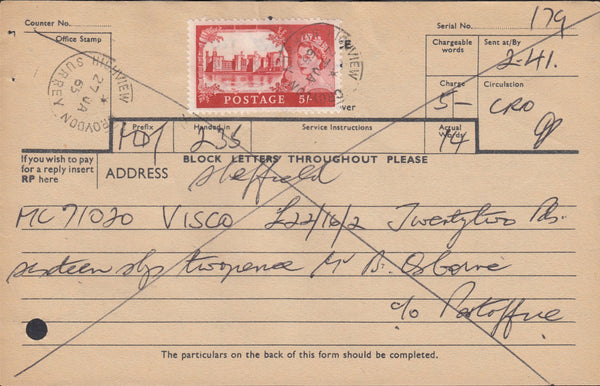 Counter No.
Serial No. 179
Office Stamp
Chargeable words
Sent at/By
2-41.
Charge
5/-
Circulation
CRO
HIGHVIEW CROYDON SURREY
27 JA 65
POSTAGE 5/-
Prefix
Handed in
Service Instructions
Actual Words
MDY 235 14
If you wish to pay for a reply insert RP here
BLOCK LETTERS THROUGHOUT PLEASE
ADDRESS
Sheffield
MC 71020 VISCO £22/16/2 Twentytwo Pds.
sixteen slgs twopence Mr B. Osborne
c/o Postoffice
The particulars on the back of this form should be completed.